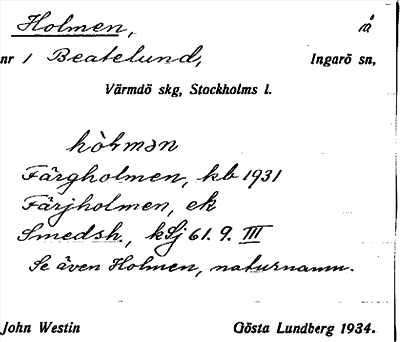 Holmen, rå
nr 1 Beatelund, Ingarö sn,
Värmdö skg, Stockholms l.
hòlmən
Färgholmen, kb 1931
Färjholmen, ek
Smedsh., kSj 61. 9. III
Se även Holmen, naturnamn.
John Westin Gösta Lundberg 1934.